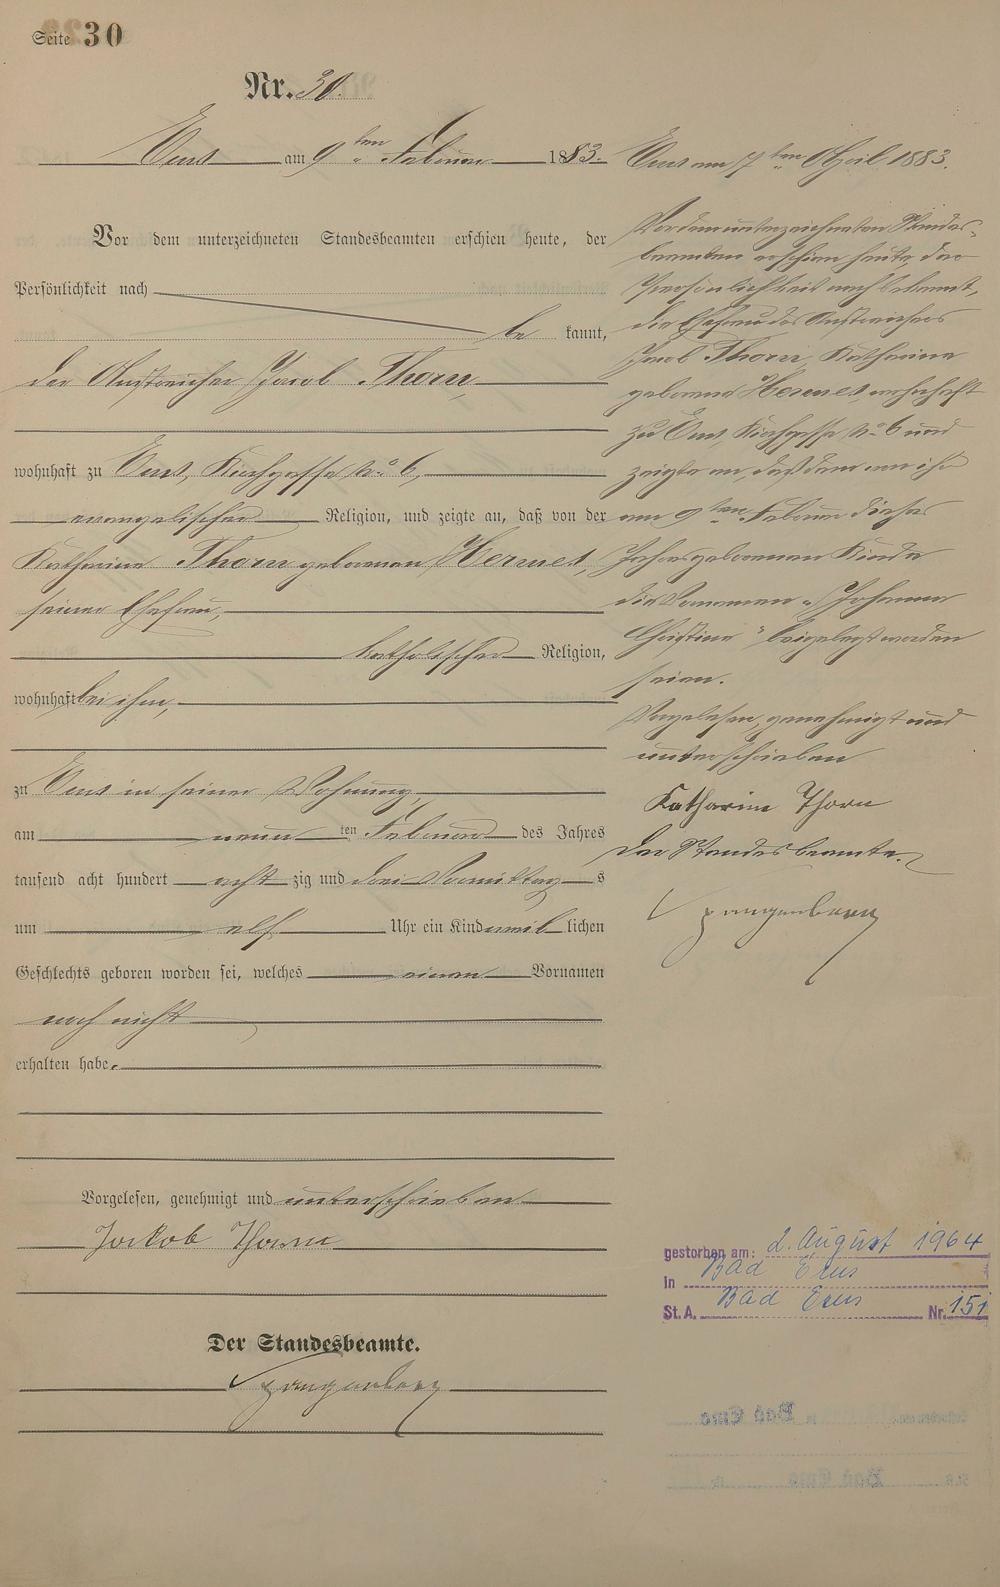 Seite 30
Nr. 30.
Ems am 9ten Februar 1883.
Vor dem unterzeichneten Standesbeamten erschien heute, der
Persönlichkeit nach
be kannt,
der Anstreicher Jacob Thorn,
wohnhaft zu Ems, Kirchgasse No 6,
evangelischer Religion, und zeigte an, daß von der
Katharine Thorn geborenen Hermes,
seiner Ehefrau,
katholischer Religion,
wohnhaft bei ihm,
zu Ems in seiner Wohnung,
am neun ten Februar des Jahres
tausend acht hundert acht zig und drei Vormittag s
um elf Uhr ein Kind weib lichen
Geschlechts geboren worden sei, welches einen Vornamen
noch nicht
erhalten habe.
Vorgelesen, genehmigt und unterschrieben
Jakob Thorn
Der Standesbeamte.
Spangenberg
Ems am 7ten April 1883.
Vor dem unterzeichneten Standes-
beamten erschien heute, der
Persönlichkeit nach bekannt,
die Ehefrau des Anstreichers
Jacob Thorn, Katharine
geborene Hermes, wohnhaft
zu Ems, Kirchgasse No 6 und
zeigte an, daß dem von ihr
am 9ten Februar dieses
Jahres geborenen Kinde
die Vornamen „Johanna
Christine" beigelegt worden
seien.
Vorgelesen, genehmigt und
unterschrieben
Katharine Thorn
Der Standesbeamte.
Spangenberg
gestorben am: 2. August 1964
in Bad Ems
St. A. Bad Ems Nr. 151